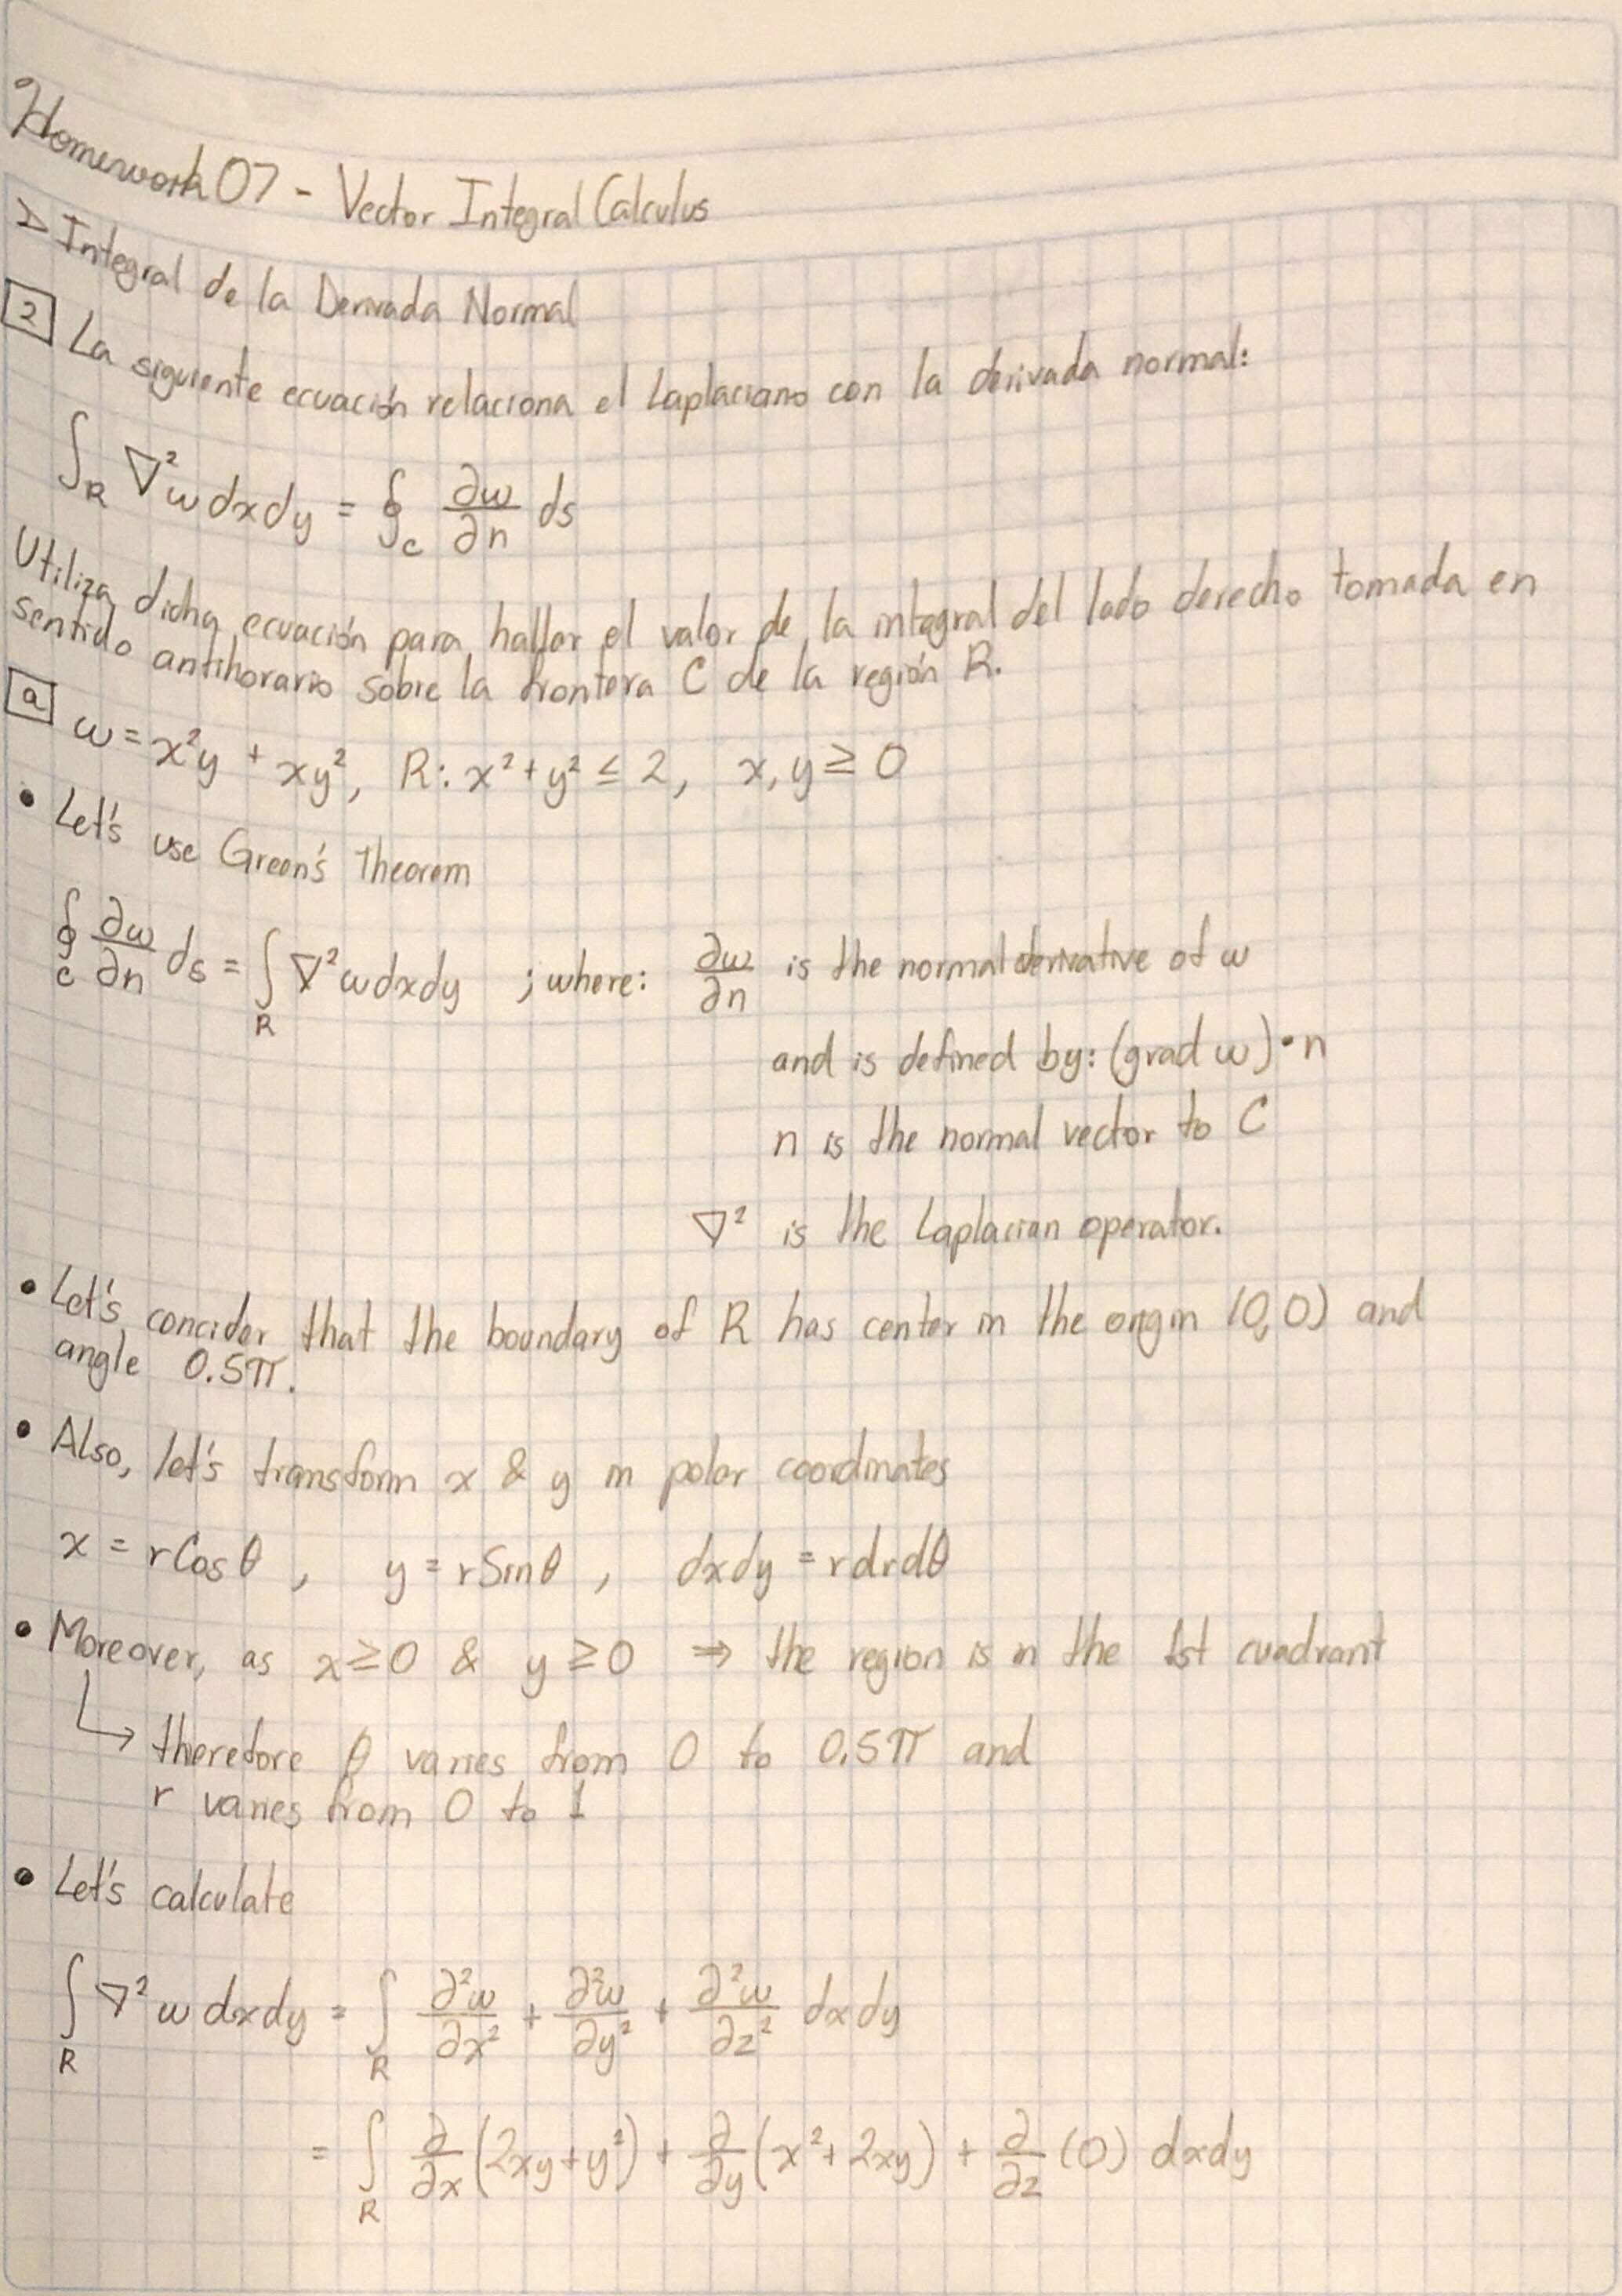 Homework 07 - Vector Integral Calculus
▷ Integral de la Derivada Normal
2 La siguiente ecuación relaciona el Laplaciano con la derivada normal:
∫_R ∇²w dxdy = ∮_C ∂w/∂n ds
Utiliza dicha ecuación para hallar el valor de la integral del lado derecho tomada en
sentido antihorario sobre la frontera C de la región R.
a w = x²y + xy², R: x² + y² ≤ 2, x, y ≥ 0
• Let's use Green's Theorem
∮_C ∂w/∂n ds = ∫_R ∇²w dxdy ; where: ∂w/∂n is the normal derivative of w
and is defined by: (grad w)•n
n is the normal vector to C
∇² is the Laplacian operator.
• Let's concider that the boundary of R has center in the origin (0,0) and
angle 0.5π.
• Also, let's transform x & y in polar coordinates
x = rCosθ , y = rSinθ , dxdy = rdrdθ
• Moreover, as x ≥ 0 & y ≥ 0 ⇒ the region is in the 1st cuadrant
↳ therefore θ varies from 0 to 0.5π and
r varies from 0 to 1
• Let's calculate
∫_R ∇²w dxdy = ∫_R ∂²w/∂x² + ∂²w/∂y² + ∂²w/∂z² dxdy
= ∫_R ∂/∂x (2xy + y²) + ∂/∂y (x² + 2xy) + ∂/∂z (0) dxdy